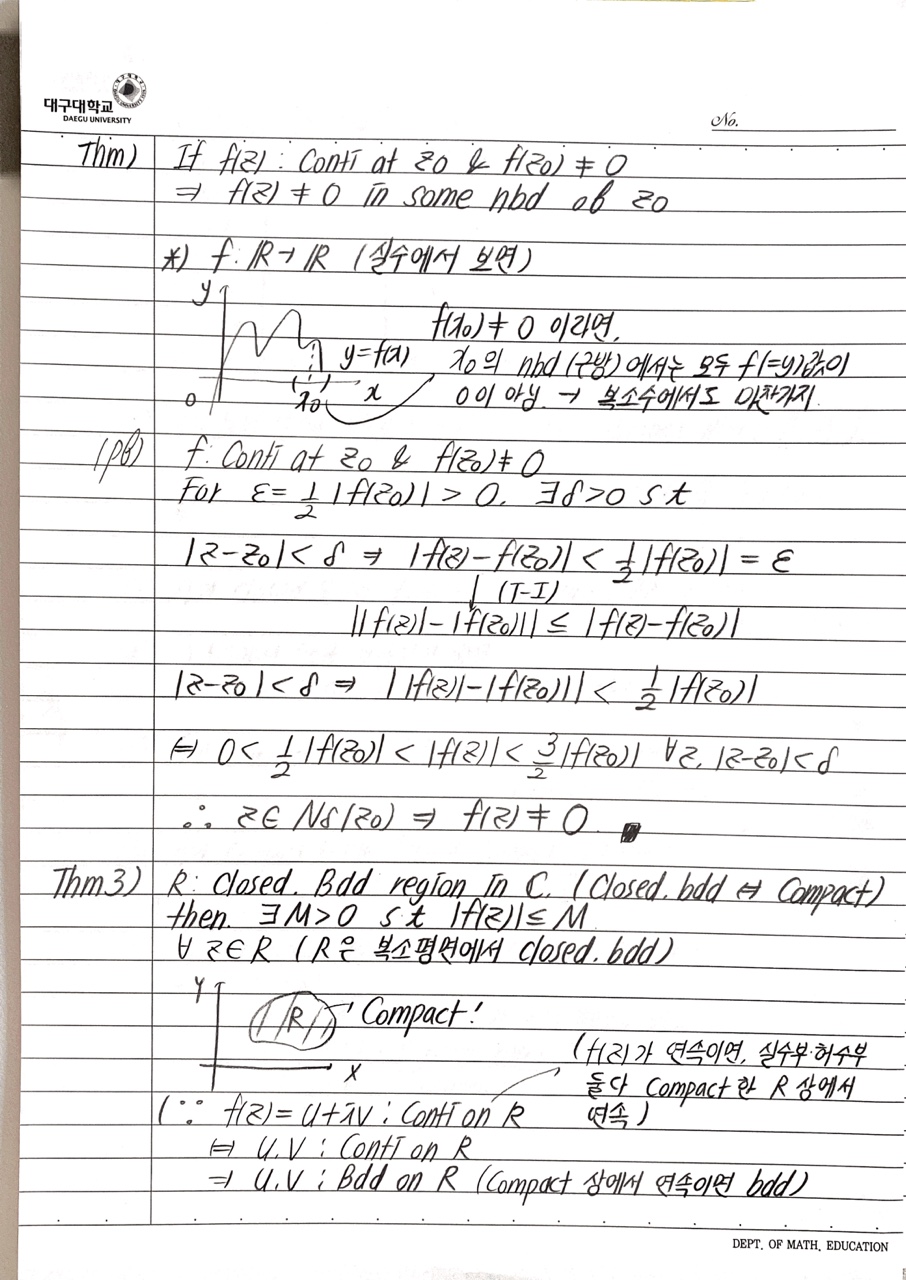 대구대학교
DAEGU UNIVERSITY
No.
Thm) If f(z) : Conti at z0 & f(z0) ≠ 0
⇒ f(z) ≠ 0 in some nbd of z0
*) f: ℝ→ℝ (실수에서 보면)
y
f(x0) ≠ 0 이라면,
y=f(x)
x0의 nbd (근방)에서는 모두 f(=y)값이
0 x0 x
0이 아님. → 복소수에서도 마찬가지.
(pf) f: Conti at z0 & f(z0) ≠ 0
For ε = 1/2 |f(z0)| > 0. ∃δ>0 s.t
|z-z0| < δ ⇒ |f(z)-f(z0)| < 1/2 |f(z0)| = ε
↓ (T-I)
||f(z)|-|f(z0)|| ≤ |f(z)-f(z0)|
|z-z0| < δ ⇒ ||f(z)|-|f(z0)|| < 1/2 |f(z0)|
⇔ 0 < 1/2 |f(z0)| < |f(z)| < 3/2 |f(z0)| ∀z, |z-z0| < δ
∴ z∈Nδ(z0) ⇒ f(z) ≠ 0 ■
Thm 3) R: Closed. Bdd region in C. (Closed. bdd ⇔ Compact)
then. ∃M>0 s.t |f(z)| ≤ M
∀z∈R (R은 복소평면에서 closed. bdd)
Y
R Compact!
X
(f(z)가 연속이면, 실수부·허수부
둘다 Compact한 R 상에서
연속)
(∵ f(z) = u+iv : Conti on R
⇔ u.v : Conti on R
⇒ u.v : Bdd on R (Compact 상에서 연속이면 bdd)
DEPT. OF MATH. EDUCATION